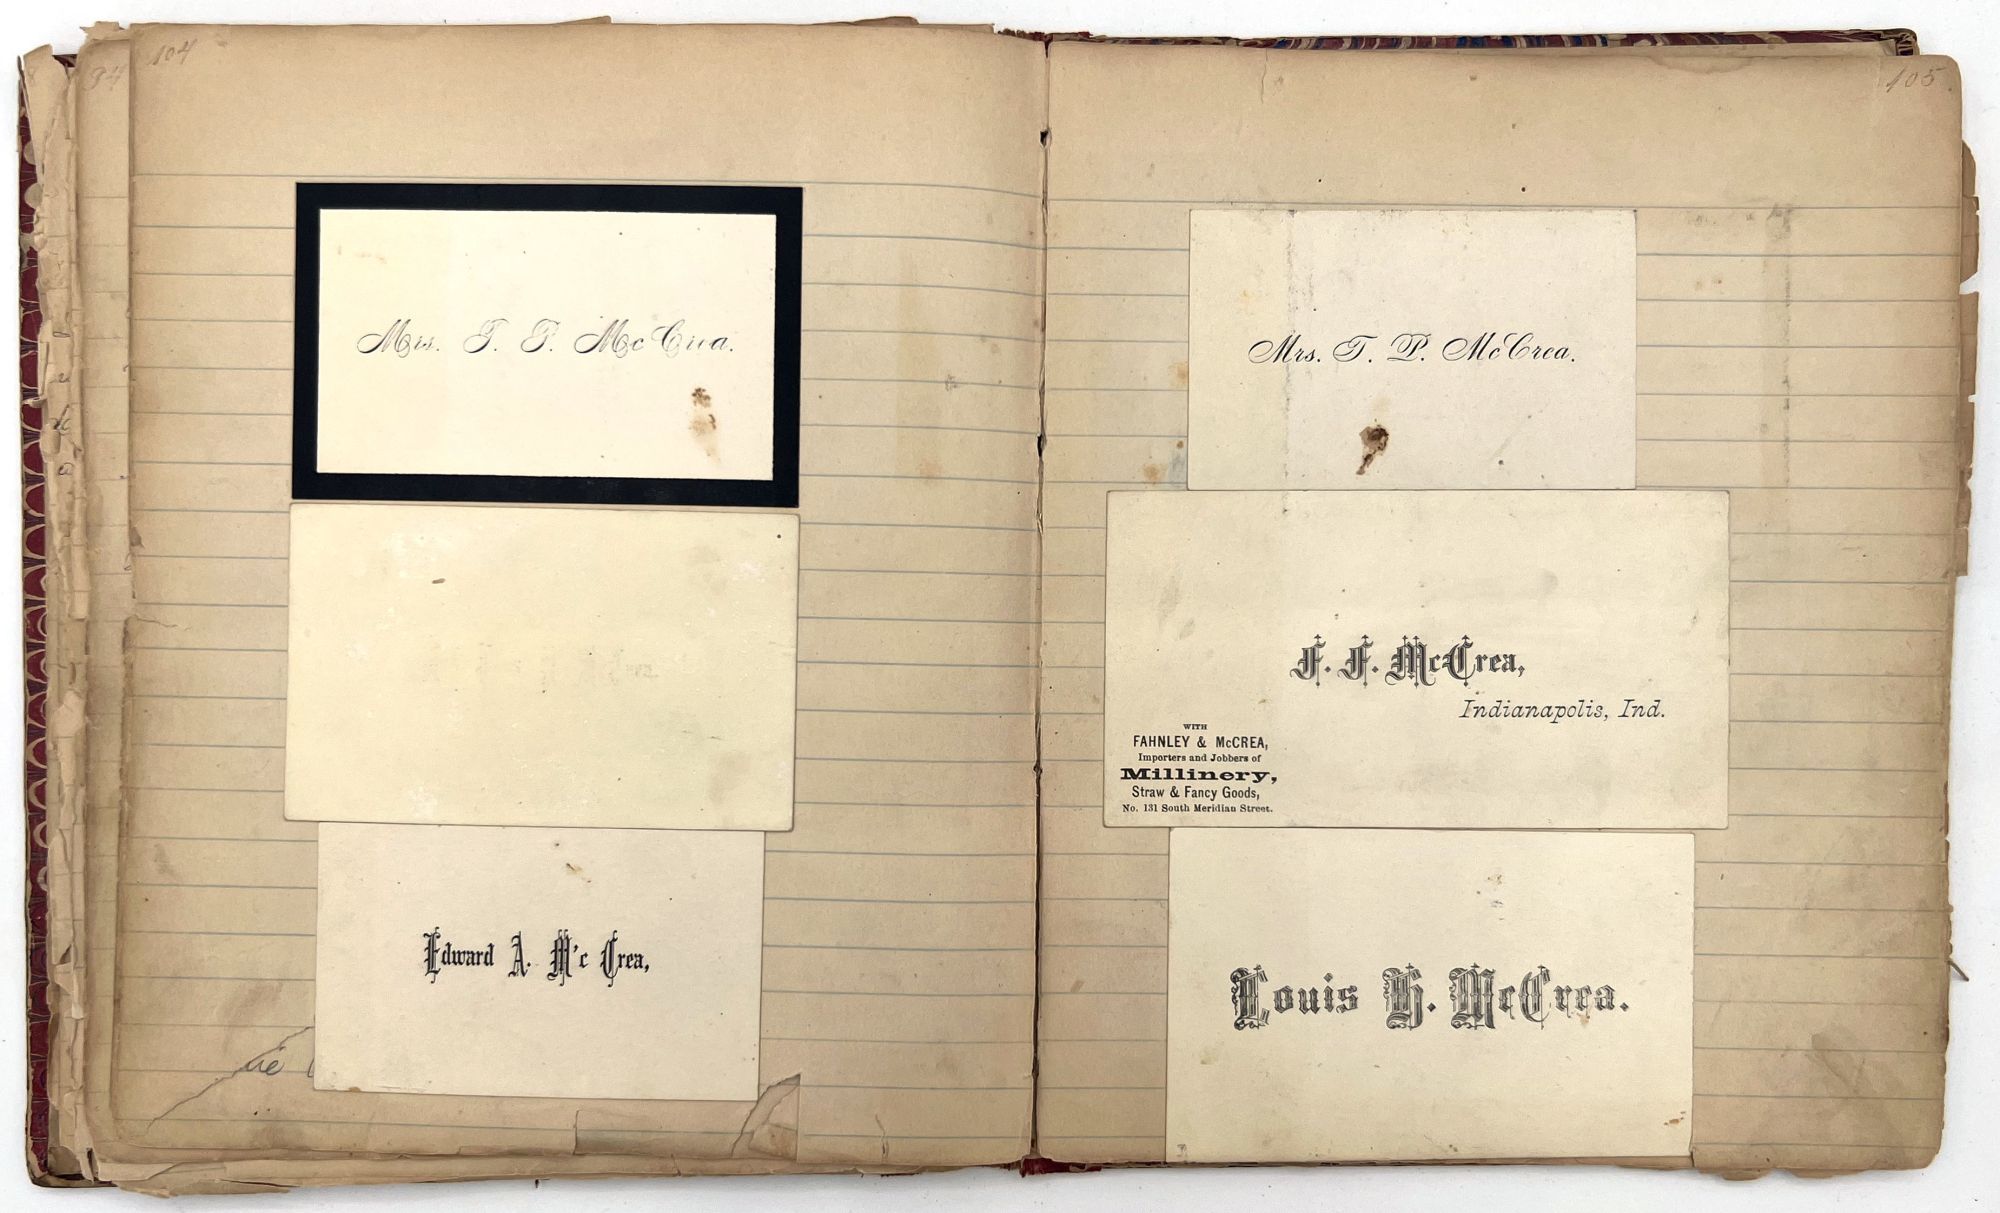 104
94
Mrs. T. P. McCrea.
Edward A. M'c Crea,
105
Mrs. T. P. McCrea.
F. F. McCrea,
Indianapolis, Ind.
WITH
FAHNLEY & McCREA,
Importers and Jobbers of
Millinery,
Straw & Fancy Goods,
No. 131 South Meridian Street.
Louis H. McCrea.